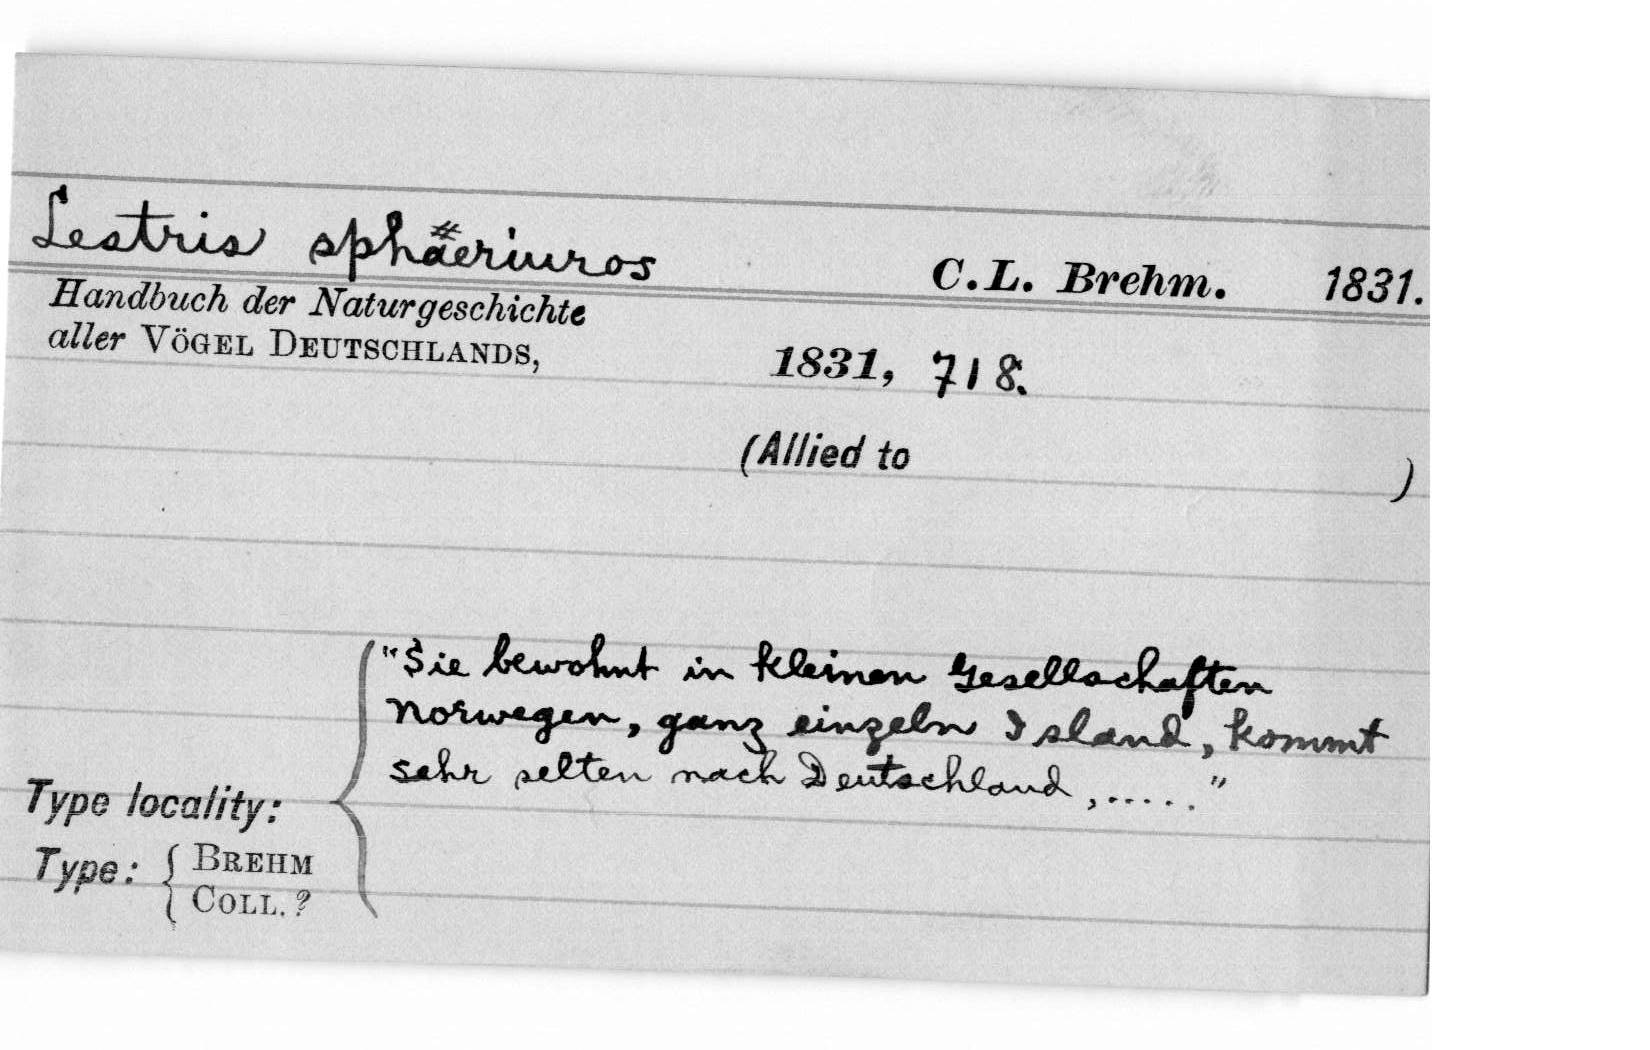 Lestris sphäeriuros C.L. Brehm. 1831.
Handbuch der Naturgeschichte
aller VÖGEL DEUTSCHLANDS, 1831, 718.
(Allied to )
"Sie bewohnt in kleinen Gesellschaften
Norwegen, ganz einzeln Island, kommt
sehr selten nach Deutschland,....."
Type locality:
Type: { BREHM
COLL. ?